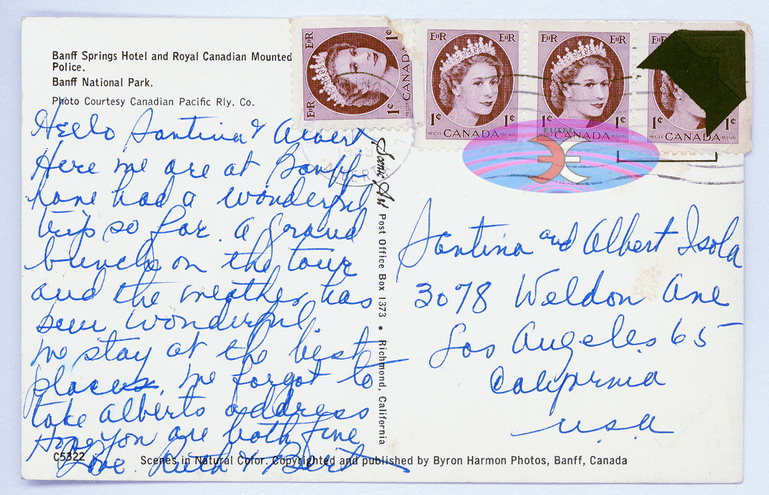 Banff Springs Hotel and Royal Canadian Mounted
Police.
Banff National Park.
Photo Courtesy Canadian Pacific Rly. Co.
Hello Santina & Albert
Here we are at Banff
have had a wonderful
trip so far. a grand
bunch on the tour
and the weather has
been wonderful.
we stay at the best
places. we forgot to
take Alberts address
Hope you are both fine
Love Ruth & Bert
C5322
Scenes in Natural Color. Copyrighted and published by Byron Harmon Photos, Banff, Canada
Scenic Art Post Office Box 1373 • Richmond, California
E II R 1¢ CANADA 1¢
E II R E II R
1¢ CANADA 1¢
E II R E II R
1¢ CANADA 1¢
1¢ CANADA 1¢
Santina and Albert Isola
3078 Weldon Ave
Los Angeles 65
California
U.S.A